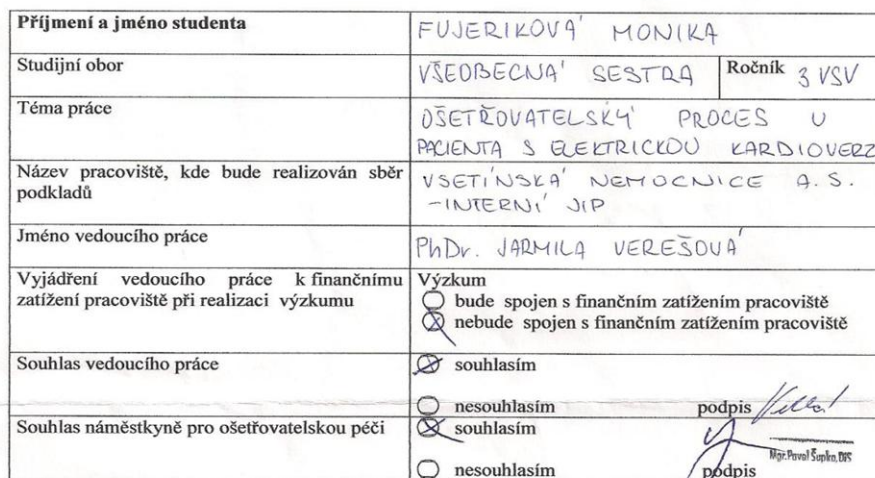 Příjmení a jméno studenta FUJERIKOVÁ MONIKA
Studijní obor VŠEOBECNÁ SESTRA Ročník 3 VSV
Téma práce OŠETŘOVATELSKÝ PROCES U
PACIENTA S ELEKTRICKOU KARDIOVERZ
Název pracoviště, kde bude realizován sběr
podkladů
VSETÍNSKÁ NEMOCNICE A.S.
-INTERNÍ JIP
Jméno vedoucího práce PhDr. JARMILA VEREŠOVÁ
Vyjádření vedoucího práce k finančnímu
zatížení pracoviště při realizaci výzkumu
Výzkum
bude spojen s finančním zatížením pracoviště
nebude spojen s finančním zatížením pracoviště
Souhlas vedoucího práce souhlasím
nesouhlasím podpis
Souhlas náměstkyně pro ošetřovatelskou péči souhlasím
Mgr. Pavel Šupka, DiS
nesouhlasím podpis